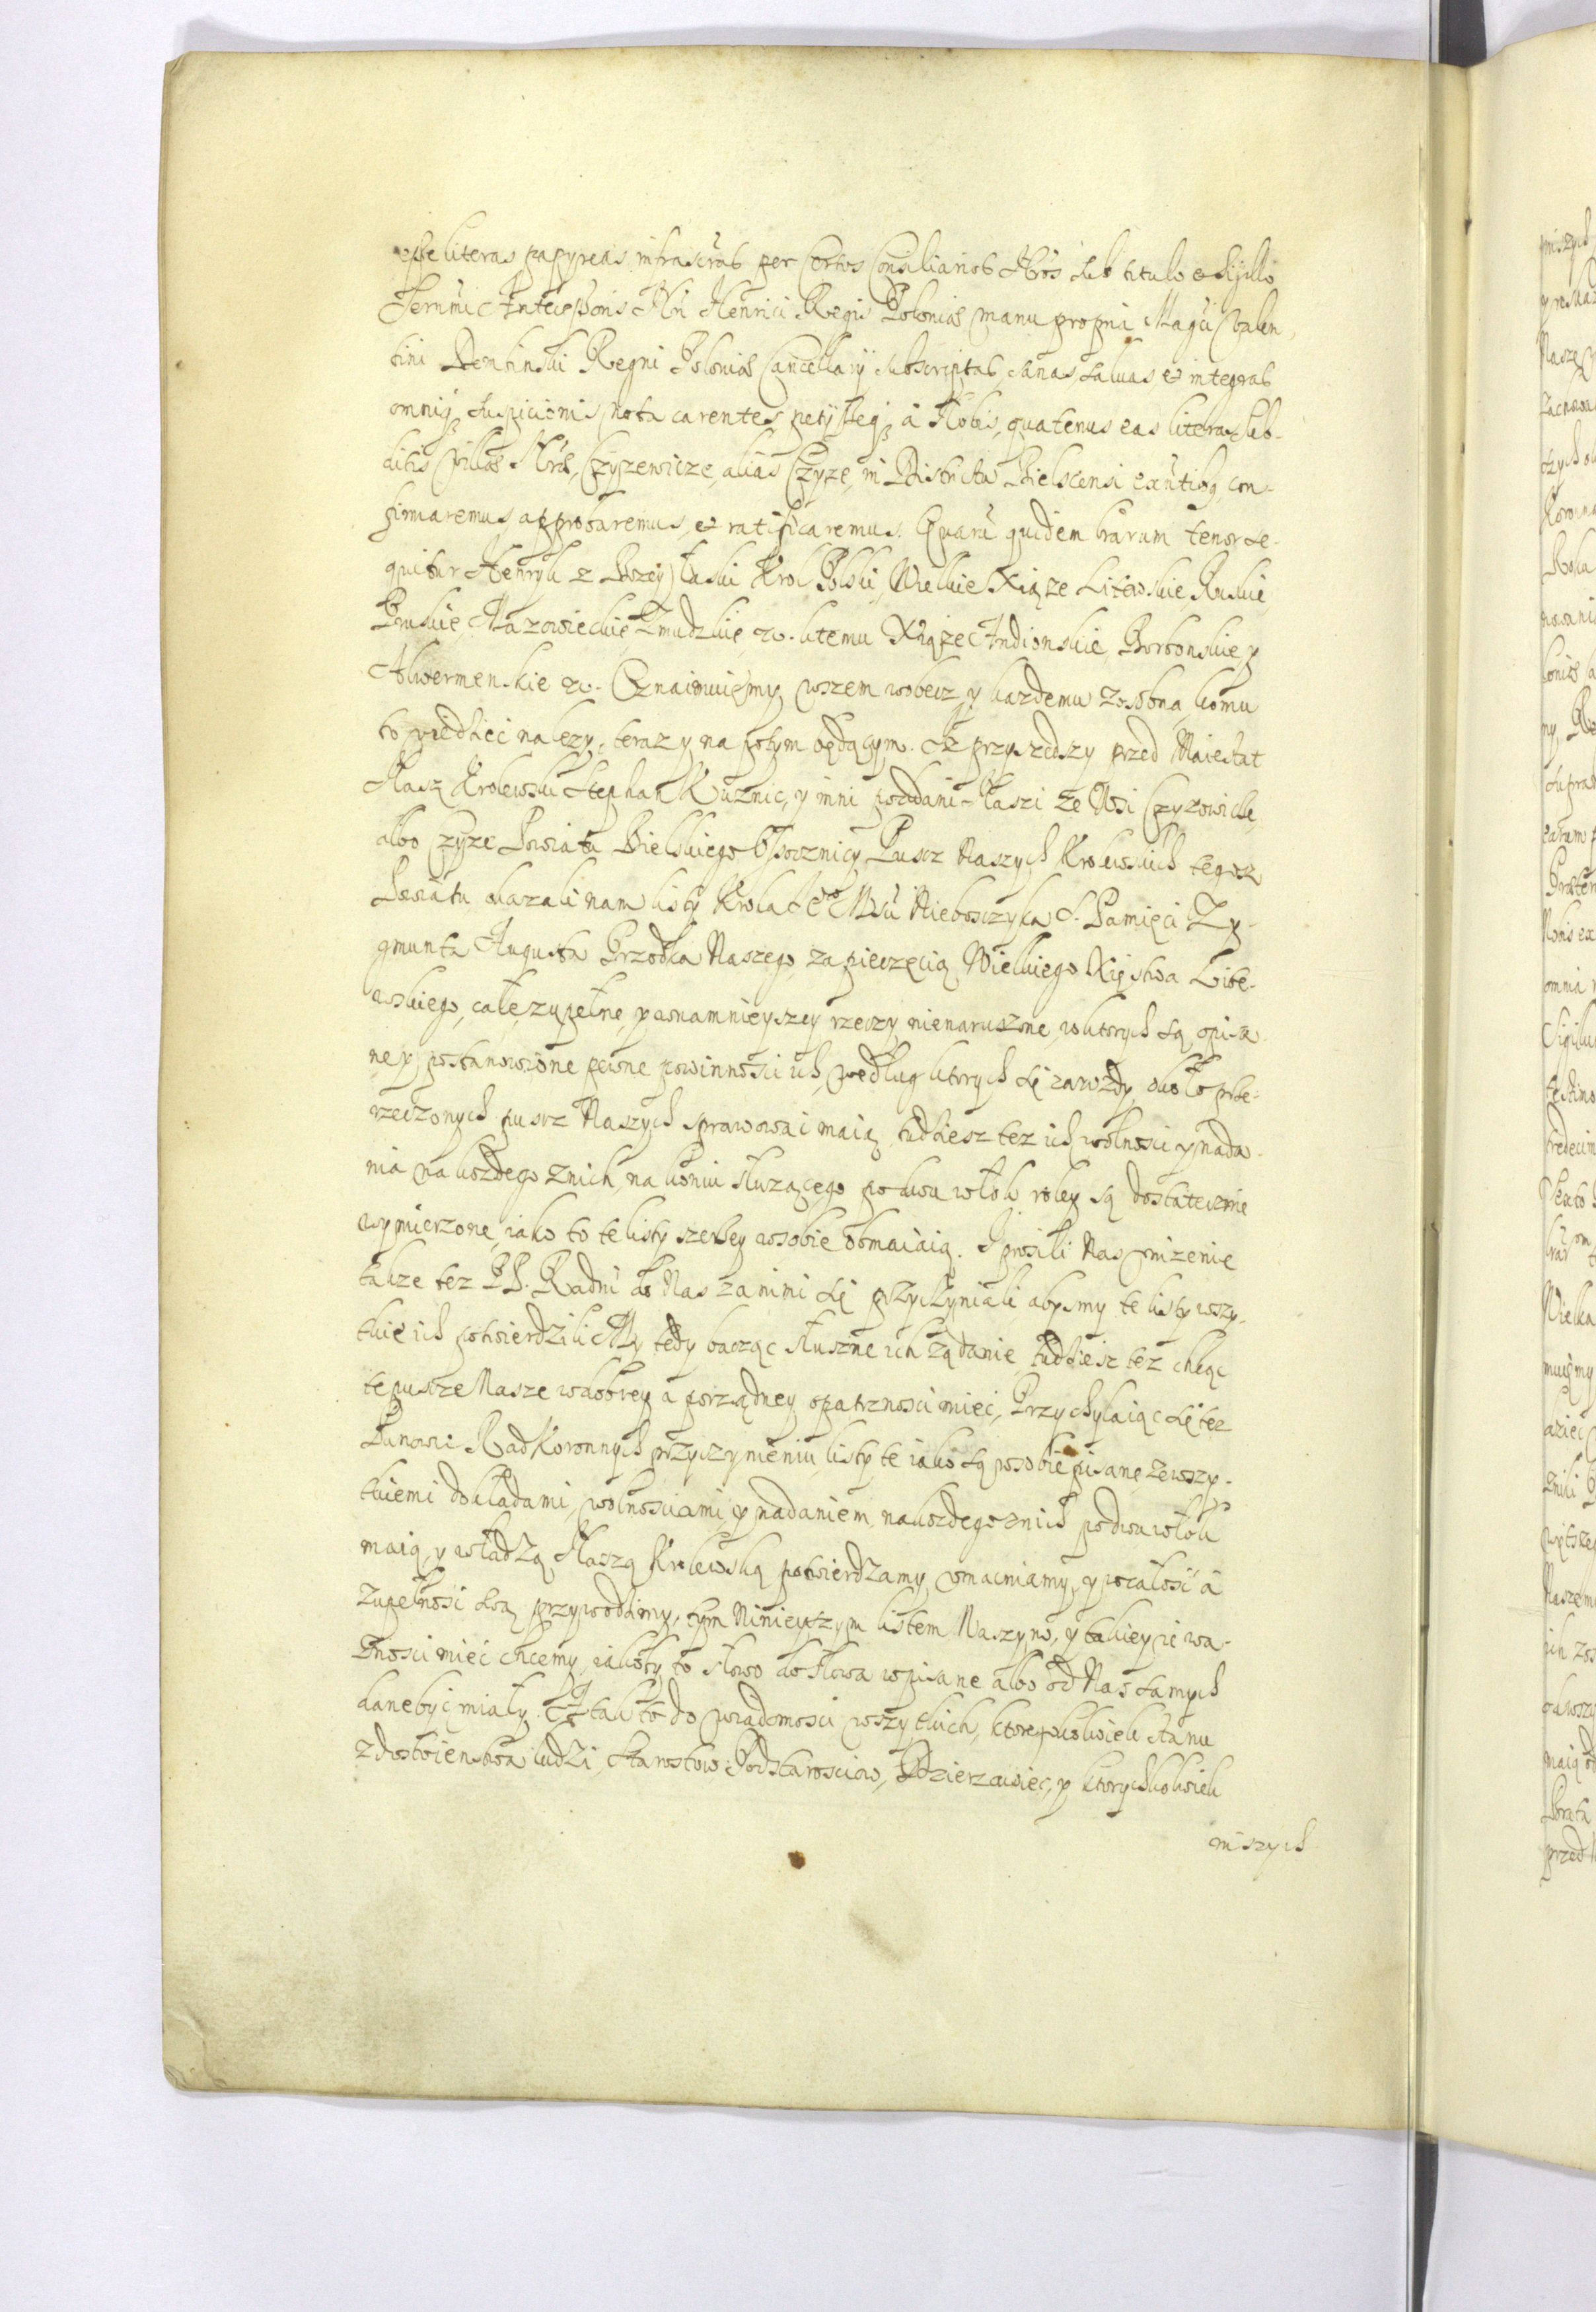 esse literas papyreas infrascrăs per Certos Consiliarios Nŕos sub titulo et sigillo
Serńmi Antecessoris Nŕi Henrici Regis Poloniæ manu propria Magći Valen-
tini Dembinski Regni Poloniæ Cancellarij subscriptas, sanas, salvas et integras
omniq3 suspicionis nota carentes, petijsseq3 à Nobis, quatenus eas literas sub-
ditis Villæ Nŕæ, Czyzewicze, alias Czyze, in Districtu Bielscensi exńtibq, con-
firmaremus approbaremus, et ratificaremus. Quarū quidem lrarum tenor se-
quitur Henryk z Bozey Łaski Krol Polski, Wielkie Xiąze Litewskie, Ruskie
Pruskie, Mazowieckie, Zmudzkie, etc. ktemu Xiąze Andionskie, Borbonskie, y
Alwermenskie etc. Oznaimuiemy wszem wobecz, y kazdemu zosobna, komu
to wiedziec nalezy, teraz y na potym będącym. Iz przyszedszy przed Maiestat
Nasz Krolewski Stephan Kuznic, y inni poddani Naszi ze Wsi Czyzowicze,
albo Czyze Powiatu Bielskiego Ossocznicy Puscz Naszych Krolewskich tegoz
Powiatu okazali nam listy Krola Je° Mśći Nieboszczyka S. Pamięci Zy-
gmunta Augusta Przodka Naszego, za pieczęcią Wielkiego Xięstwa Lite-
wskiego, całe, zupełne, y wnamnieyszey rzeczy nienaruszone, wktorych są, opisa-
ne y postanowione pewne powinnosci ich, według ktorych się zawzdy około prze-
rzeczonych puscz Naszych sprawowaċ maią, tudziesz tez ich wolnosci y nada-
nia na kozdego znich, na koniu słuzącego po dwu włok roley są dostatecznie
wymierzone, iako to te listy szerzey wsobie obmawiaią. I prosili Nas unizenie
takze tez PP. Radni do Nas za nimi się przyczyniali, abysmy te listy wszy-
tkie ich potwierdzili. My tedy bacząc słuszne ich ządanie, tudziesz tez chcąc
te puscze Nasze wdobrey a porządney opatrznosci miec, Przychylaiąc się tez
Panow Rad Koronnych przyczynieniu, listy te iako są wsobie pisane, ze wszy-
tkiemi dokladami, wolnosciami, y nadaniem, nakozdego znich po dwu włok
maią, y władzą Naszą Krolewską potwierdzamy, umacniamy, y wcałosć a
zupełnosć swą przywodzimy, tym Ninieyszym listem Naszym, y takiey ie wa-
znosci mieć chcemy, iakoby to słowo do słowa wpisane albo od Nas samych
dane być miały. A tak to do wiadomosci wszytkich, ktoregokolwiek stanu
z dostoienstwa ludzi, Starostow, Podstarosciow, Dzierzawiec, y ktorychkolwiek
inszych